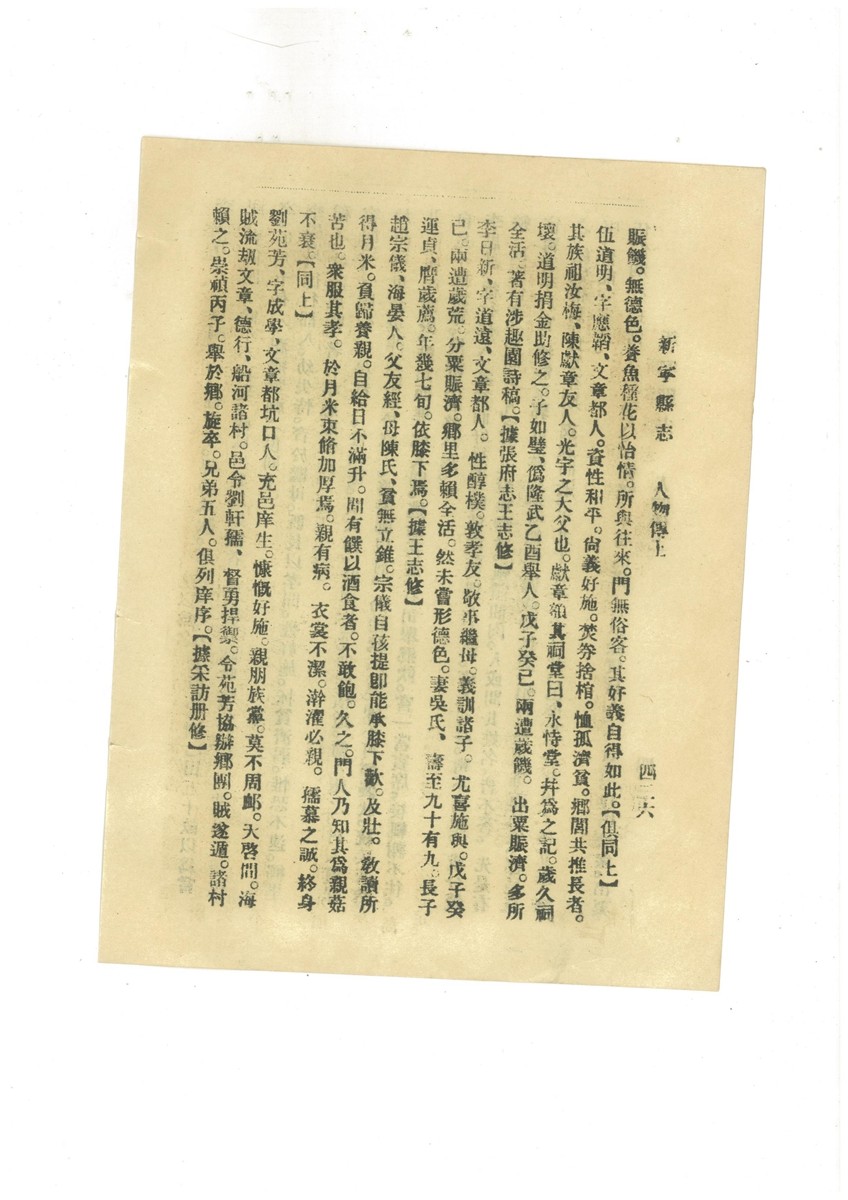 新寧縣志　人物傳上　四二六
賑饑。無德色。養魚種花以怡情。所與往來。門無俗客。其好義自得如此。【俱同上】
伍道明、字應韜、文章都人。資性和平。尙義好施。焚券捨棺。恤孤濟貧。鄉閭共推長者。
其族祖汝梅、陳獻章友人。光宇之大父也。獻章額其祠堂曰、永恃堂。幷爲之記。歲久祠
壞。道明捐金助修之。子如璧、僞隆武乙酉舉人。戊子癸巳。兩遭歲饑。出粟賑濟。多所
全活。著有涉趣園詩稿。【據張府志王志修】
李日新、字道遠、文章都人。性醇樸。敦孝友。敬事繼母。義訓諸子。尤喜施與。戊子癸
巳。兩遭歲荒。分粟賑濟。鄉里多賴全活。然未嘗形德色。妻吳氏、壽至九十有九。長子
運貞、膺歲薦。年幾七旬。依膝下焉。【據王志修】
趙宗儀、海晏人。父友經、母陳氏、貧無立錐。宗儀自孩提卽能承膝下歡。及壯。敎讀所
得月米。負歸養親。自給日不滿升。間有饌以酒食者。不敢飽。久之。門人乃知其爲親茹
苦也。衆服其孝。於月米束脩加厚焉。親有病。衣裳不潔。澣濯必親。孺慕之誠。終身
不衰。【同上】
劉苑芳、字成學、文章都坑口人。充邑庠生。慷慨好施。親朋族黨。莫不周卹。天啓間。海
賊流刼文章、德行、船河諸村。邑令劉軒孺、督勇捍禦。令苑芳協辦鄉團。賊遂遁。諸村
賴之。崇禎丙子。舉於鄉。旋卒。兄弟五人。俱列庠序。【據采訪册修】